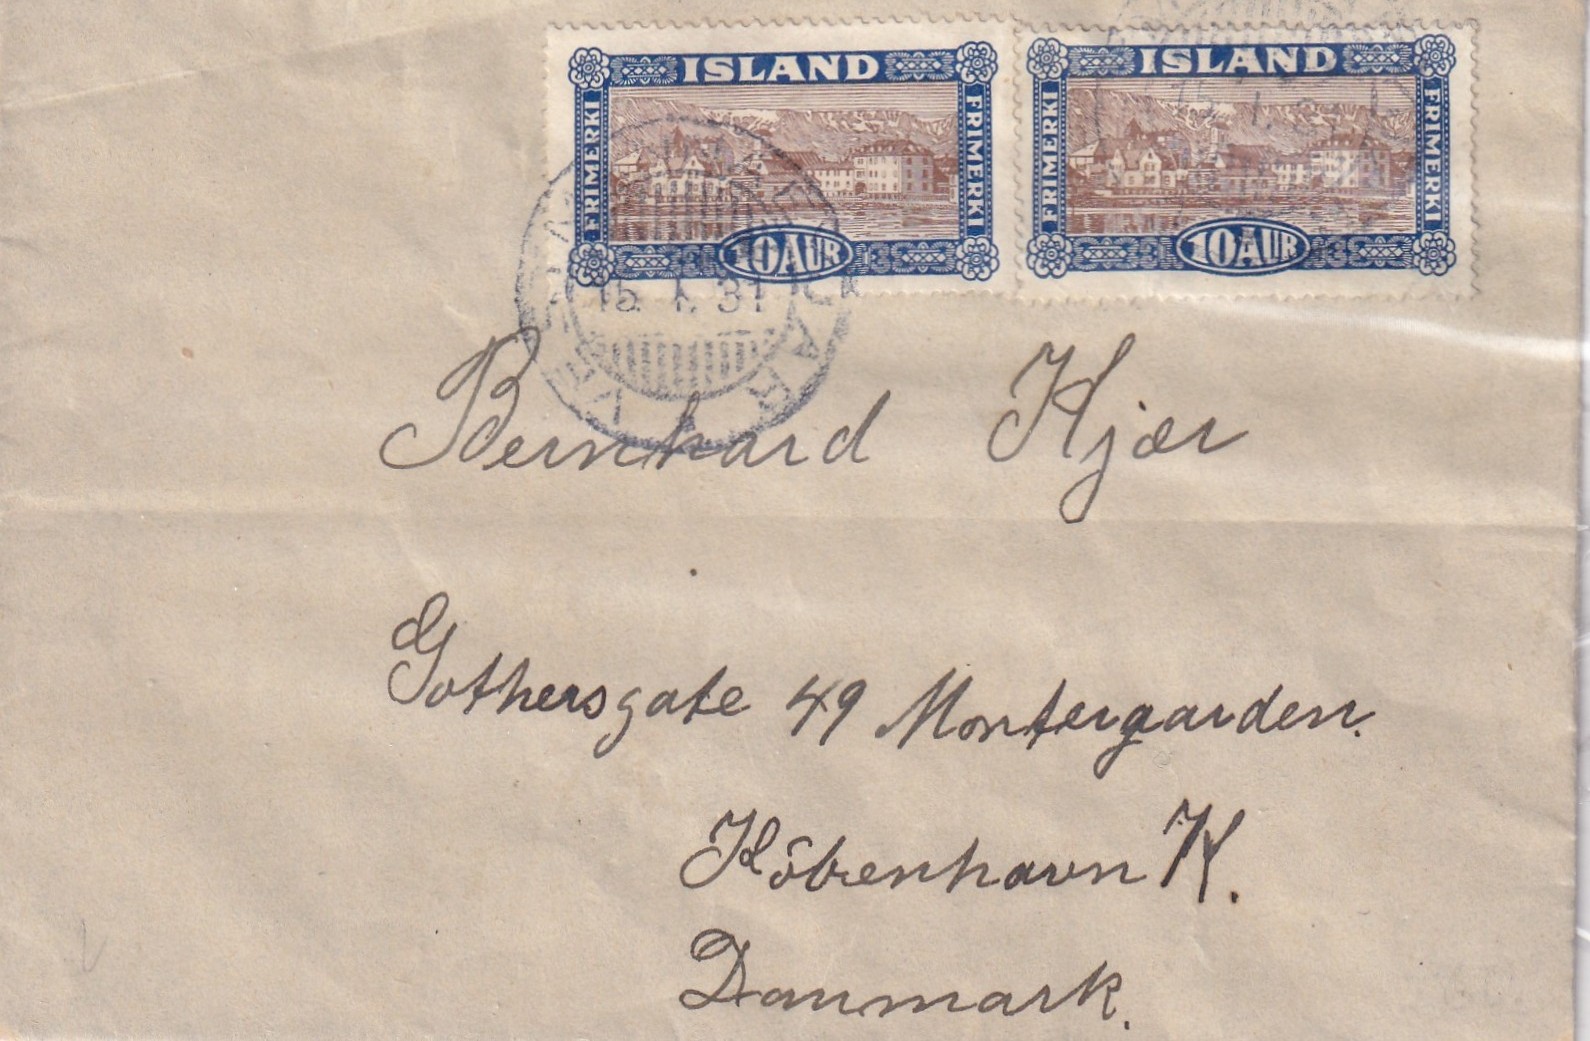 ISLAND
FRIMERKI
FRIMERKI
10 AUR
ISLAND
FRIMERKI
FRIMERKI
10 AUR
15. 1. 31
Bernhard Kjær
Gothersgate 49 Montergarden.
Köbenhavn K.
Danmark.